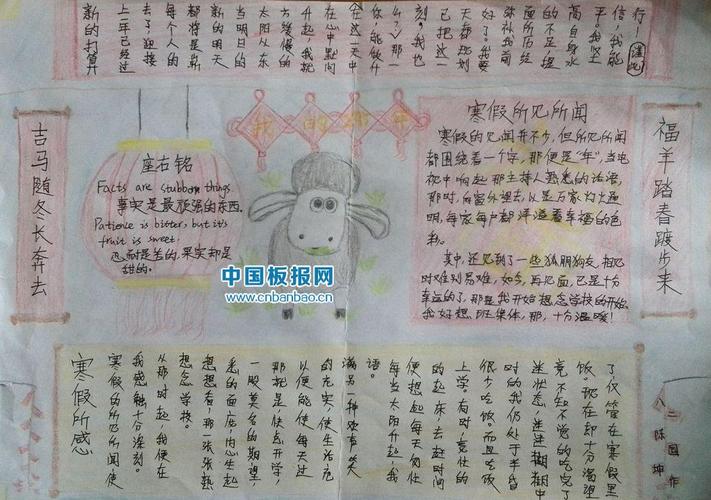 行！
信，我能
新的打算
上一年已经过
去了，迎接
每个人的
都将是崭
新的明天
当明日的
太阳从东
方缓缓的
升起，我
在心中默问
在这一天中
你能做什
么？那一
刻，我也
已把这一
天都规划
好了。我要
弥补我前
面所历经
的不足，提
高自身水
平。我坚
吉马随冬长奔去
福羊踏春踱步来
我的新年
座右铭
Facts are stubborn things
事实是最顽强的东西。
Patience is bitter, but it's
fruit is sweet.
忍耐是苦的，果实却是
甜的。
寒假所见所闻
寒假的见闻并不少，但所见所闻
都围绕着一个字，那便是“年”，当电
视中响起那主持人熟悉的话语，
那时，向窗外望去，以是万家灯火通
明，每家每户都洋溢着幸福的色
彩。
其中，还见到了一些狐朋狗友，相见
时难别易难，如今，再见面，已是十分
幸运的了，那是我开始想念学校的开始，
我好想班集体，那，十分温暖！
中国板报网
www.cnbanbao.cn
寒假所感
寒假的所见所闻使
我感触十分深刻。
从那时起我便在
想念学校。
想想看，那一张张熟
悉的面庞，内心生起
一股莫名的期望，
那就是，快点开学，
以便能使每天过
的充实，使生活充
满另一种欢声笑
语。
每当太阳升起，我
便想起每天匆忙
的起床去赶时间
上学。有时竟忙的
很少吃饭。而且吃饭
时的我仍处于半昏
迷状态，迷迷糊糊中
竟不知不觉的吃完了
饭。现在却十分渴望
了仅管在寒假里
八三
陈坤
园作